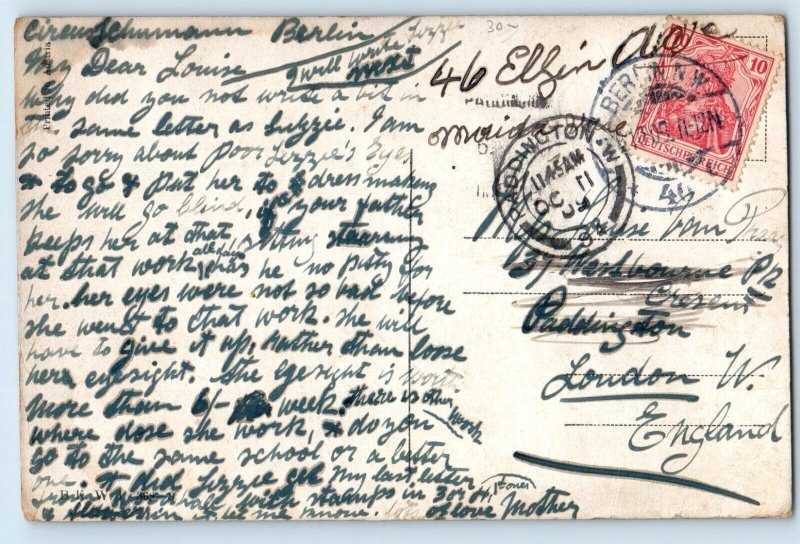 Circus Schumann Berlin
Lizzie I will write next
My Dear Louise
Why did you not write a bit in
the same letter as Lizzie. I am
so sorry about Poor Lizzie's Eyes
& to go & put her to dressmaking
she will go blind, if your father
keeps her at that sitting staring
at that work all day has he no pity for
her. her eyes were not so bad before
she went to that work. she will
have to give it up, Rather than loose
her eyesight. she eyesight is worth
more than 6/- week. There is other work
where dose she work, & do you
go to the same school or a better
one. & did Lizzie get my last letter
with stamps in 3 or 4,
& let me know. lots of love Mother
46 Elgin Av
Maida
PADDINGTON. W.
11.45 AM
OC 11
09
BERLIN N.W.
10
DEUTSCHES REICH
Louise van
37 Westbourne
Crescent
Paddington
London W.
England
30-
B.K.W.I.